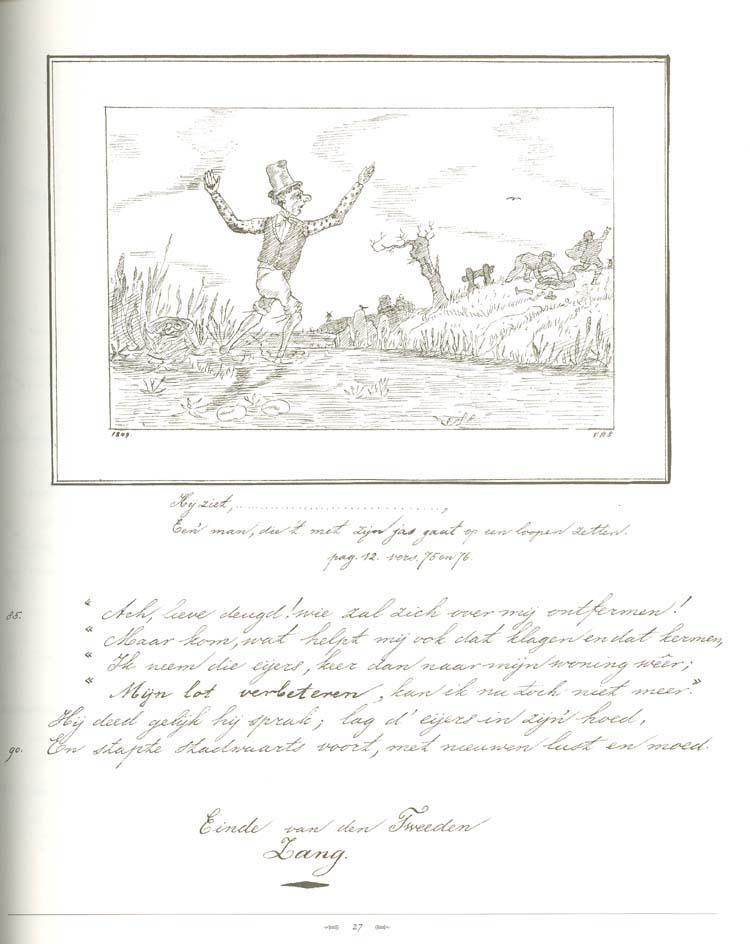 1849.
Hij ziet, ........................................,
Een man, die 't met zijn jas gaat op een loopen zetten.
pag. 12. vers. 75 en 76.
85. " Ach, lieve deugd! wie zal zich over mij ontfermen!
" Maar kom, wat helpt mij ook dat klagen en dat kermen,
" Ik neem die eijers, keer dan naar mijn woning wêer;
" Mijn lot verbeteren, kan ik nu toch niet meer."
Hij deed gelijk hij sprak; lag d' eijers in zijn hoed,
90. En stapte stadwaarts voort, met nieuwen lust en moed.
Einde van den Tweeden
Zang.
27